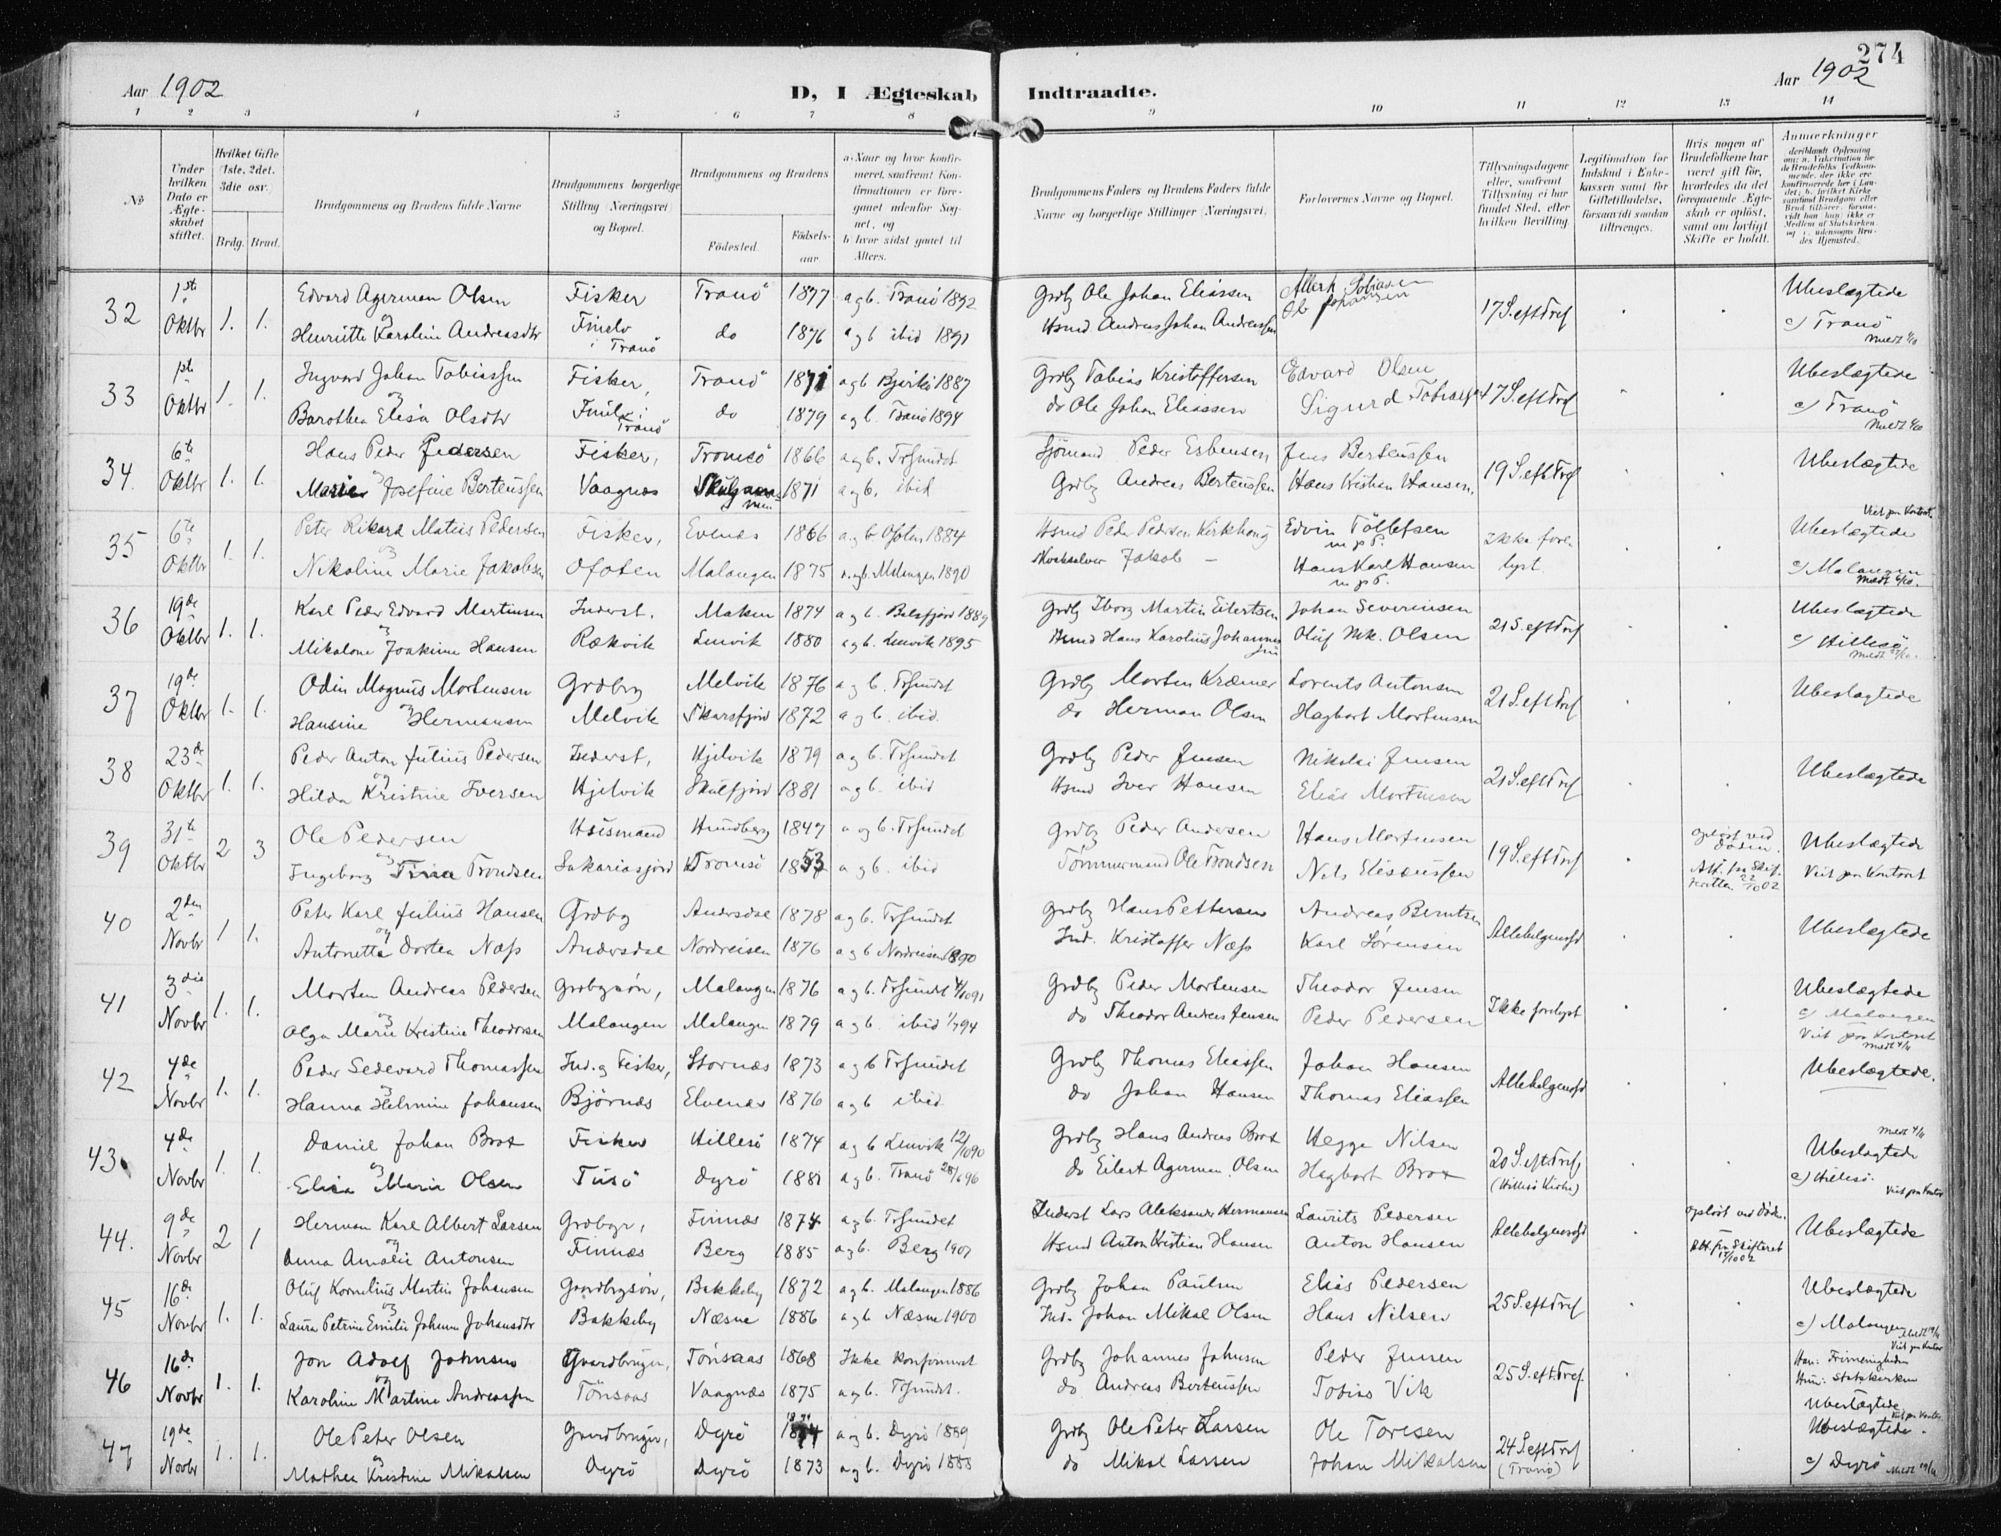 274
Aar 1902
D, I Ægteskab Indtraadte.
Aar 1902
1 2 3 4 5 6 7 8 9 10 11 12 13 14
No
Under hvilken Dato er Ægteskabet stiftet.
Hvilket Gifte (1ste, 2det, 3die osv.)
Brdg. Brud.
Brudgommens og Brudens fulde Navne
Brudgommens borgerlige Stilling (Næringsvei) og Bopæl.
Brudgommens og Brudens
Fødested. Fødselsaar
a. Naar og hvor konfirmeret, saafremt Konfirmationen er foregaaet udenfor Sognet, og
b. hvor sidst gaaet til Alters.
Brudgommens Faders og Brudens Faders fulde Navne og borgerlige Stillinger (Næringsvei).
Forlovernes Navne og Bopæl.
Tillysningsdagene eller, saafremt Tillysning ei har fundet Sted, efter hvilken Bevilling
Legitimation for Indskud i Enkekassen samt for Giftetilladelse, forsaavidt saadan tiltrænges.
Hvis nogen af Brudefolkene har været gift før, hvorledes da det foregaaende Ægteskab er opløst, samt om lovligt Skifte er holdt.
Anmærkninger
32 1ste Oktbr 1. 1.
Edvard Agerman Olsen Fisker Tranö 1877 a g b. Tranö 1892 Grdbg Ole Johan Eliassen
og Henriette Karoline Andreasdtr i Tranö do 1876 a g b ibid 1891 Hsmd Andreas Johan Andreassen Ob Johansen
17 S. eft Tref Ubeslægtede c) Tranö
33 1ste Oktbr 1. 1.
Ingvard Johan Tobiassen Fisker, Tranö 1871 a g b Bjarkö 1887 Grdbg Tobias Kristoffersen Edvard Olsen
og Barothea Elisa Olsdtr i Tranö do 1879 a g b. Tranö 1894 do Ole Johan Eliassen Sigurd Tobiassen
17 S. eft Tref Ubeslægtede c) Tranö
34. 6te Oktbr 1. 1.
Hans Peder Pedersen Fisker, Tromsö 1866 a g b. Trfundet Sjömand Peder Esbensen Jens Bertenssen
og Josefine Bertenssen Vaagnæs 1871 a g b. ibid Grdbg Andreas Bertenssen Hans Kristian Hansen.
19 S. eft Tref Ubeslægtede
35 6te Oktbr 1. 1.
Peter Rikard Matius Pedersen Fisker, Evenæs 1866 a g b Ofoten 1884 Hsmd Peder Pedersen Kirkhaug Edvin Töllefsen m. p. P.
og Nikoline Marie Jakobsen Ofoten Malangen 1875 a. g b. Malangen 1890 Jakob — Hans Karl Hansen m. p. P.
Ikke forelyst Viet paa Kontoret Ubeslægtede c) Malangen
36 19de Oktbr 1. 1.
Karl Peder Edvard Martinsen Inderst, Maken 1874 a g b. Balsfjord 1889 Grdbg Martin Eilertsen Johan Severinsen
og Mikaline Joakime Hansen Rækvik Lenvik 1880 a g b. Lenvik 1895 Hsmd Hans Karolius Johannessen Oluf Mk. Olsen
21 S. eft Tref Ubeslægtede c) Hillesö
37 19de Oktbr 1. 1.
Odin Magnus Mortensen Grdbg Melvik 1876 a g b. Trfundet Grdbg Morten Kræmer Lorents Antonsen
og Hansine Hermansen Melvik Skarsfjord 1872 a g b. ibid. do Herman Olsen Hagbart Mortensen
21 S. eft Tref Ubeslægtede
38 23de Oktbr 1. 1.
Peder Anton Julius Pedersen Inderst, Hjelvik 1879 a g b. Trfundet Grdbg Peder Jensen Nikolai Jensen
og Hilda Kristine Iversen Hjelvik Skulfjord 1881 a g b. ibid Hsmd Iver Hansen Elias Mortensen
21 S. eft Tref Ubeslægtede
39 31te Oktbr 2 3
Ole Pedersen Husmand Hundberg 1847 a g b. Trfundet Grdbg Peder Andersen Hans Mortensen
og Ingeborg Trina Trondsen Sakariasfjord Tromsö 1853 a g b. ibid Tömmermand Ole Trondsen Nils Eliseussen
19 S. eft Tref opløst ved döden. Att. fra Skifteretten 22/10 02 Ubeslægtede Viet paa Kontoret
40 2den Novbr 1 1.
Peter Karl Julius Hansen Grdbg Andersdse 1878 a g b. Trfundet Grdbg Hans Pettersen Andreas Berntsen
og Antonette Dortea Næss Andersdse Nordreisen 1876 a g b Nordreisen 1890 Ind. Kristoffer Næss Karl Sörensen
Allehelgensd Ubeslægtede
41 3die Novbr 1. 1.
Morten Andreas Pedersen Grdbgsön, Malangen 1876 a g b. Trfundet 4/10 91 Grdbg Peder Mortensen Theodor Jensen
og Olga Marie Kristine Theodorsen Malangen Malangen 1879 a g b. ibid 1/7 94 do Theodor Andreas Jensen Peder Pedersen
Ikke forelyst Ubeslægtede c) Malangen Viet paa Kontoret Meldt 4/11
42 4de Novbr 1. 1.
Peder Sedevard Thomassen Ind. og Fisker, Stornæs 1873 a g b Trfundet Grdbg Thomas Eliassen Johan Hansen
Hanna Helmine Johansen Björnæs Elvenæs 1876 a g b ibid. do Johan Hansen Thomas Eliassen
Allehelgensd Ubeslægtede.
43. 4de Novbr 1. 1.
Daniel Johan Brox Fisker Hillesö 1874 a g b Lenvik 12/10 90 Grdbg Hans Andreas Brox Hegge Nilsen
og Elisa Maria Olsen Tusö Dyrö 1881 a g b. Tranö 28/6 96 do Eilert Agerman Olsen Hagbart Brox
20 S. eft Tref (Hillesö Kirke) Meldt 4/11 Ubeslægtede c) Hillesö. Viet paa Kontor
44. 9de Novbr 2 1
Herman Karl Albert Larsen Grdbgr, Finnæs 1874 a g b. Trfundet Inderst Lars Aleksander Hermansen Laurits Pedersen
og Anna Amalie Antonsen Finnæs Berg 1885 a g b. Berg 1901 Hsmd Anton Kristian Hansen Anton Hansen
Allehelgensd opløst ved Döden. Att. fra Skifteret Ubeslægtede
45 16de Novbr 1. 1.
Oluf Kornelius Martin Johansen Gaardbrgsön, Bakkeby 1872 a g b. Malangen 1886 Grdbg Johan Paulsen Elias Pedersen
og Laura Petrine Emilie Johanne Johansdtr Bakkeby Næsne 1886 a g b Næsne 1900 Ind. Johan Mikal Olsen Hans Nilsen
25 S. eft Tref Ubeslægtede c) Malangen
46 16de Novbr 1. 1.
Jon Adolf Johnsen Gaardbruger, Tönsaas 1868 Ikke konfirmeret Grdbg Johannes Johnsen Peder Jensen
og Karoline Martine Andreassen Tönsaas Vaagnæs 1875 a g b. Trfundet. do Andreas Bertenssen Tobias Vik
25 S. eft. Tref. Viet paa Kontor Han: Frimenigheden Hun: Statskirken Ubeslægtede
47 19de Novbr 1. 1.
Ole Peter Olsen Gaardbruger, Dyrö 1874 a g b. Dyrö 1889 Grdbg Ole Peter Larsen Ole Toresen
og Mathea Kristine Mikalsen Dyrö Dyrö 1873 a g b. Dyrö 1888 do Mikal Larsen Johan Mikalsen
24 S eft Tref (Tranö) Ubeslægtede. c) Dyrö